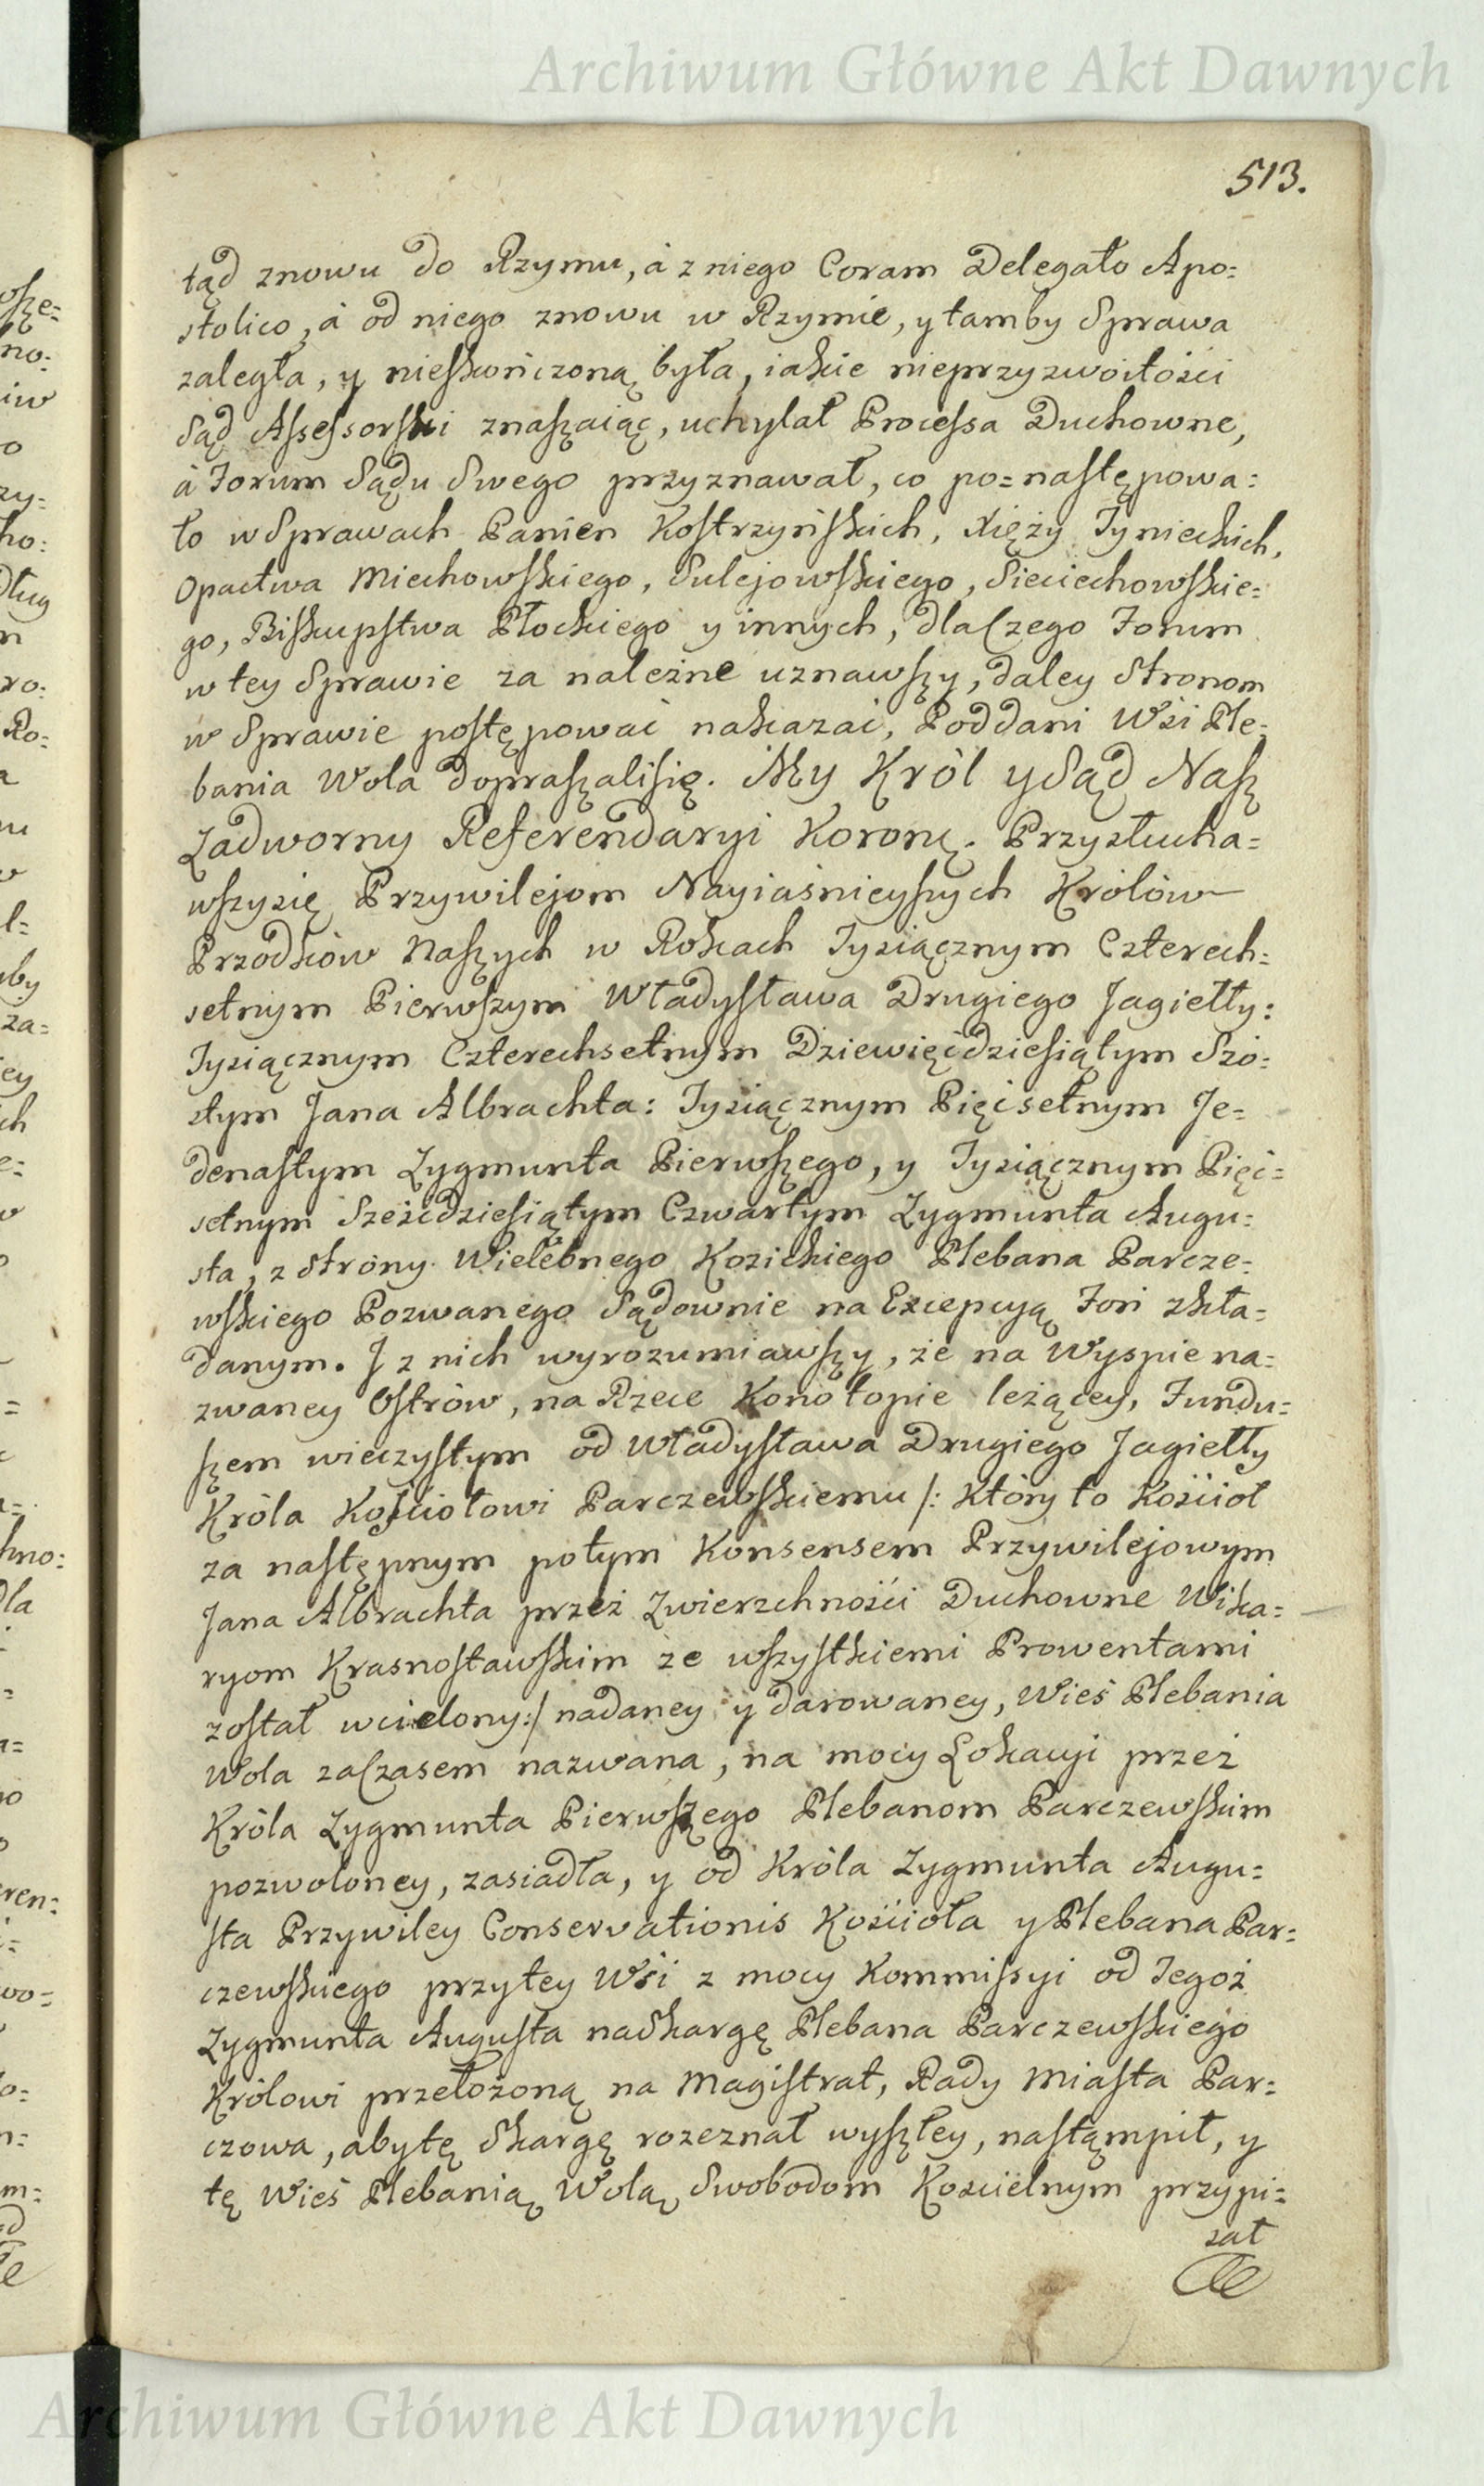 Archiwum Główne Akt Dawnych
513.
tąd znowu do Rzymu, à z niego Coram Delegato Apo=
stolico, à od niego znowu w Rzymie, y tamby Sprawa
zaległa, y nieskończoną była, iakie nieprzyzwoitości
Sąd Assessorski znaszaiąc, uchylał Processa Duchowne,
à Forum Sądu Swego przyznawał, co po=następowa=
ło w Sprawach Panien Kostrzyńskich, Xięży Tynieckich,
Opactwa Miechowskiego, Sulejowskiego, Sieciechowskie=
go, Biskupstwa Płockiego y innych, dlaczego Forum
w tey Sprawie za należne uznawszy, daley Stronom
w Sprawie postępować nakazać, Poddani Wsi Ple=
bania Wola dopraszalisię. My Król y Sąd Nasz
Zadworny Referendaryi Koronę. Przysłucha=
wszysię Przywilejom Nayiaśnieyszych Królów
Przodków Naszych w Rokach Tysiącznym Czterech=
setnym Pierwszym Władysława Drugiego Jagiełły:
Tysiącznym Czterechsetnym Dziewięćdziesiątym Szó=
stym Jana Albrachta: Tysiącznym Pięćsetnym Je=
denastym Zygmunta Pierwszego, y Tysiącznym Pięć=
setnym Sześćdziesiątym Czwartym Zygmunta Augu=
sta, z strony Wielebnego Kozickiego Plebana Parcze=
wskiego Pozwanego Sądownie na Excepcyą Fori zkła=
danym. J z nich wyrozumiawszy, że na Wyspie na=
zwaney Ostrów, na Rzece Konotopie leżącey, Fundu=
szem wieczystym od Władysława Drugiego Jagiełły
Króla Kościołowi Parczewskiemu /: Który to Kościoł
za następnym potym Konsensem Przywilejowym
Jana Albrachta przez Zwierzchności Duchowne Wika=
ryom Krasnostawskim ze wszystkiemi Prowentami
został wcielony:/ nadaney y darowaney, Wieś Plebania
Wola zaczasem nazwana, na mocy Lokacyi przez
Króla Zygmunta Pierwszego Plebanom Parczewskim
pozwoloney, zasiadła, y od Króla Zygmunta Augu=
sta Przywiley Conservationis Kościoła y Plebana Par=
czewskiego przytey Wsi z mocy Kommissyi od Tegoż
Zygmunta Augusta naSkargę Plebana Parczewskiego
Królowi przełożoną na Magistrat, Rady Miasta Par=
czowa, abytę Skargę rozeznał wyszłey, nastąmpił, y
tę Wieś Plebanią Wolą Swobodom Kościelnym przypi=
sał
Archiwum Główne Akt Dawnych